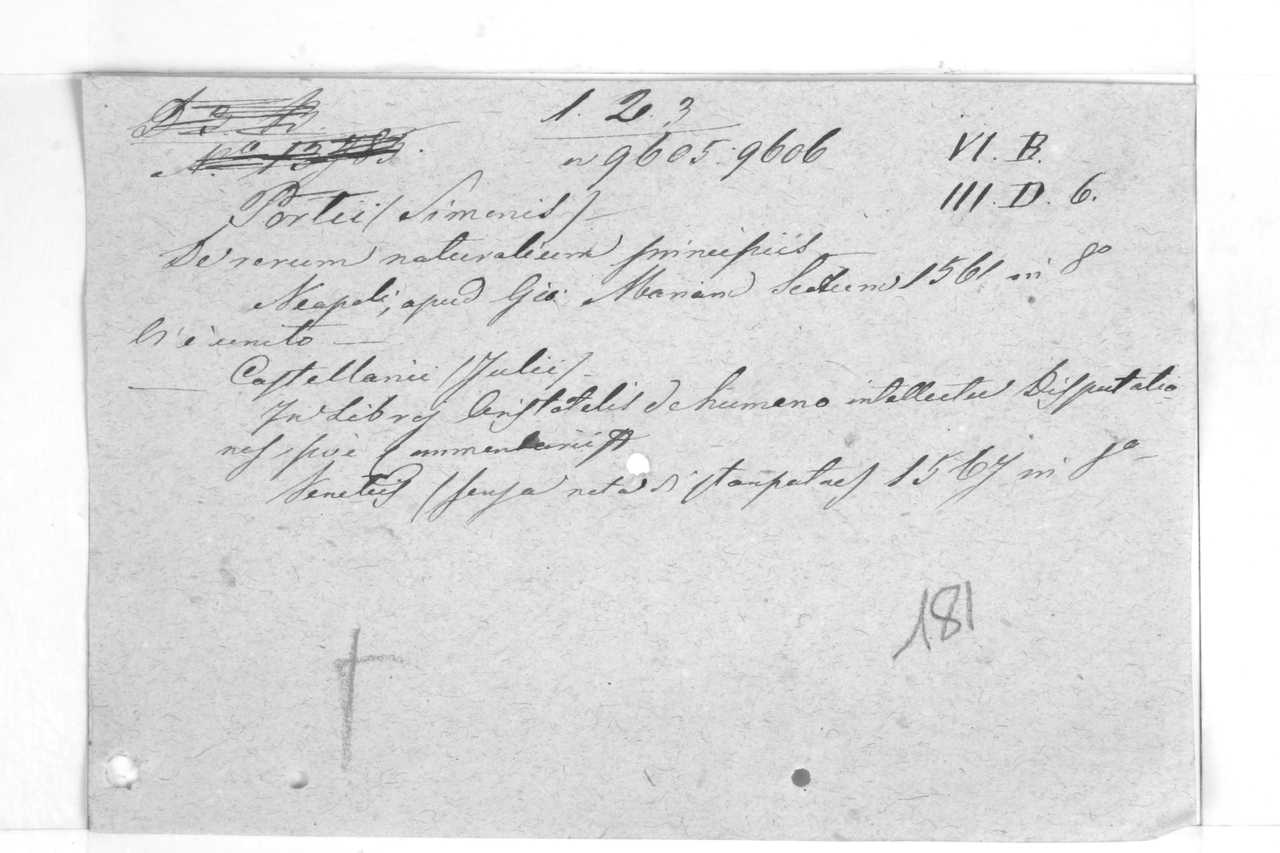 1. 2. 3
n 9605. 9606
VI. B.
III. D. 6.
Portii (Simonis)
De rerum naturalium principiis
Neapoli, apud Gio: Mariam Scotum 1561 in 8º
Vi è unito —
Castellanii (Julii)
In Libros Aristotelis de humano intellectu Disputatio
nes, sive Commentarii
Venetiis (senza nota di stampatore) 1567 in 8º
181